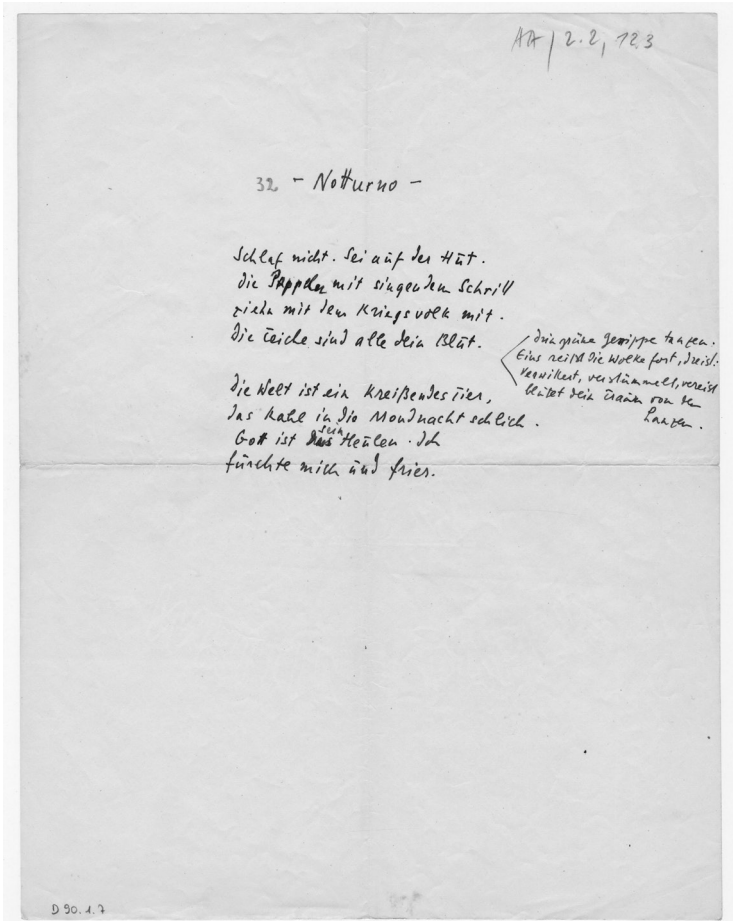 AA / 2.2, 123
32 - Notturno -
Schlaf nicht. Sei auf der Hut.
Die Pappeln mit singendem Schritt
ziehn mit dem Kriegsvolk mit.
Die Teiche sind alle dein Blut.
Drin grüne Gerippe tanzen.
Eins reißt die Wolke fort, dreist:
verwittert, verstümmelt, vereist
blutet dein Traum von den
Lanzen.
Die Welt ist ein kreißendes Tier,
das kahl in die Mondnacht schlich.
Gott ist sein Heulen. Ich
fürchte mich und frier.
D 90.1.7